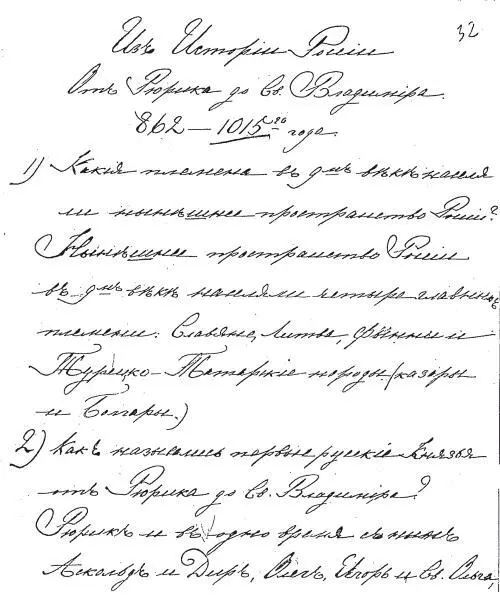 32
Изъ Исторіи Россіи
Отъ Рюрика до Св. Владиміра.
862 – 1015го года.
1) Какія племена въ 9мъ вѣкѣ населя
ли нынѣшнее пространство Россіи?
Нынѣшнее пространство Россіи
въ 9мъ вѣкѣ населяли четыре главныхъ
племени: Славяне, Литва, Финны и
Турецко-Татарскіе народы (казары
и Болгары.)
2) Какъ назывались первые русскіе Князья
отъ Рюрика до Св. Владиміра?
Рюрикъ и въ одно время съ нимъ
Аскольдъ и Диръ, Олегъ, Игорь и Св. Ольга,